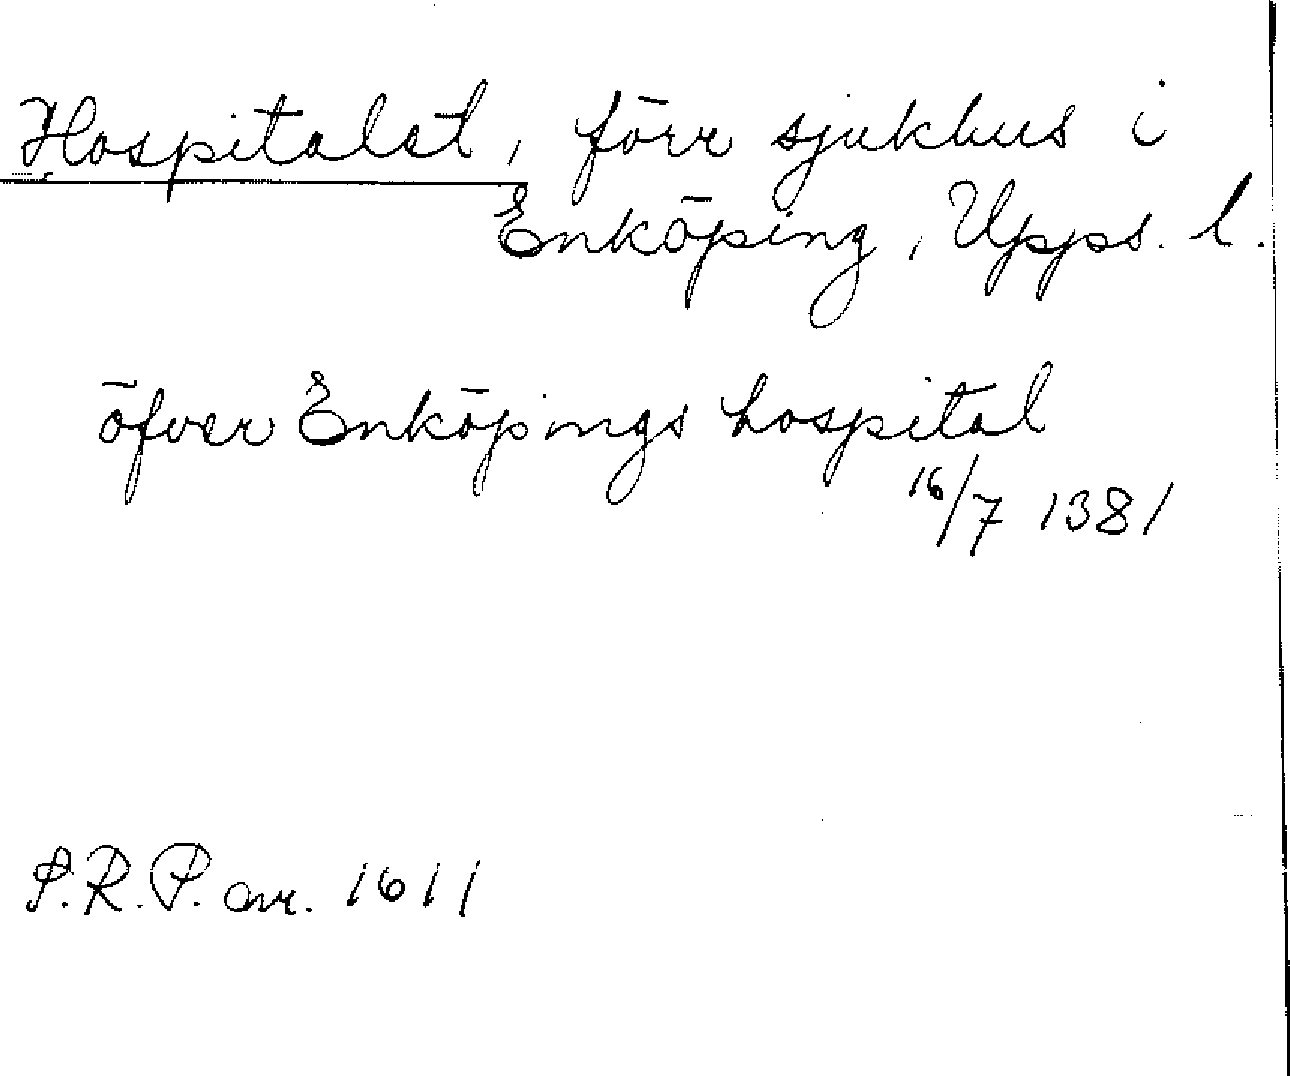 Hospitalet, förr sjukhus i
Enköping, Upps. l.
öfver Enköpings hospital
16/7 1381
S.R.P. avr. 1611